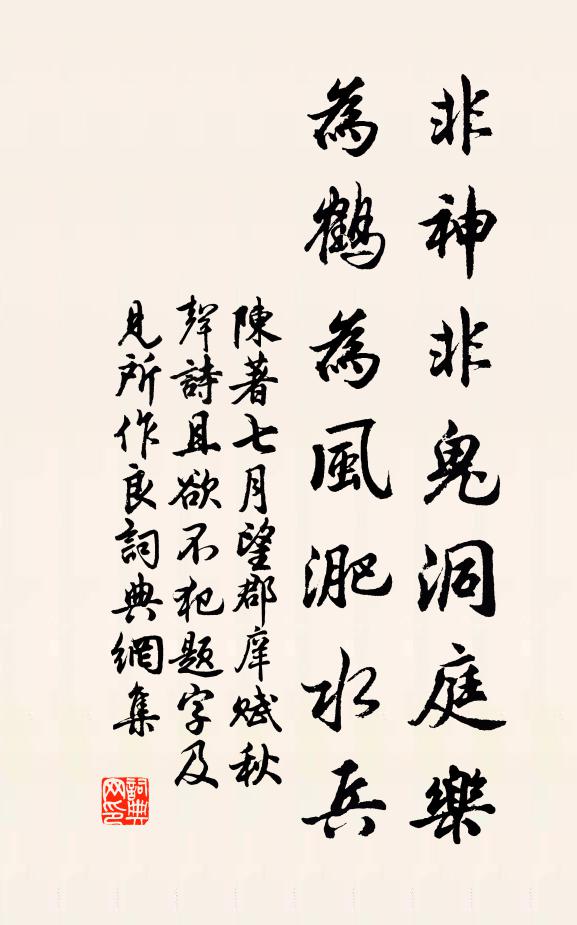 非神非鬼洞庭樂
為鶴為風淝水兵
陳著七月望郡庠賦秋
聲詩且欲不犯題字及
見所作良詞典網集
詞典
网印